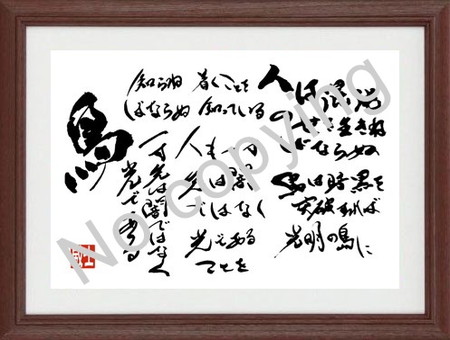 人は混沌
の世を生きね
ばならぬ
鳥は暗黒を
突破すれば
光明の島に
着くことを
知っている
人も一寸
先は闇
ではなく
光である
ことを
知らね
ばならぬ
一寸先は闇ではなく
光である
鳥
No copying